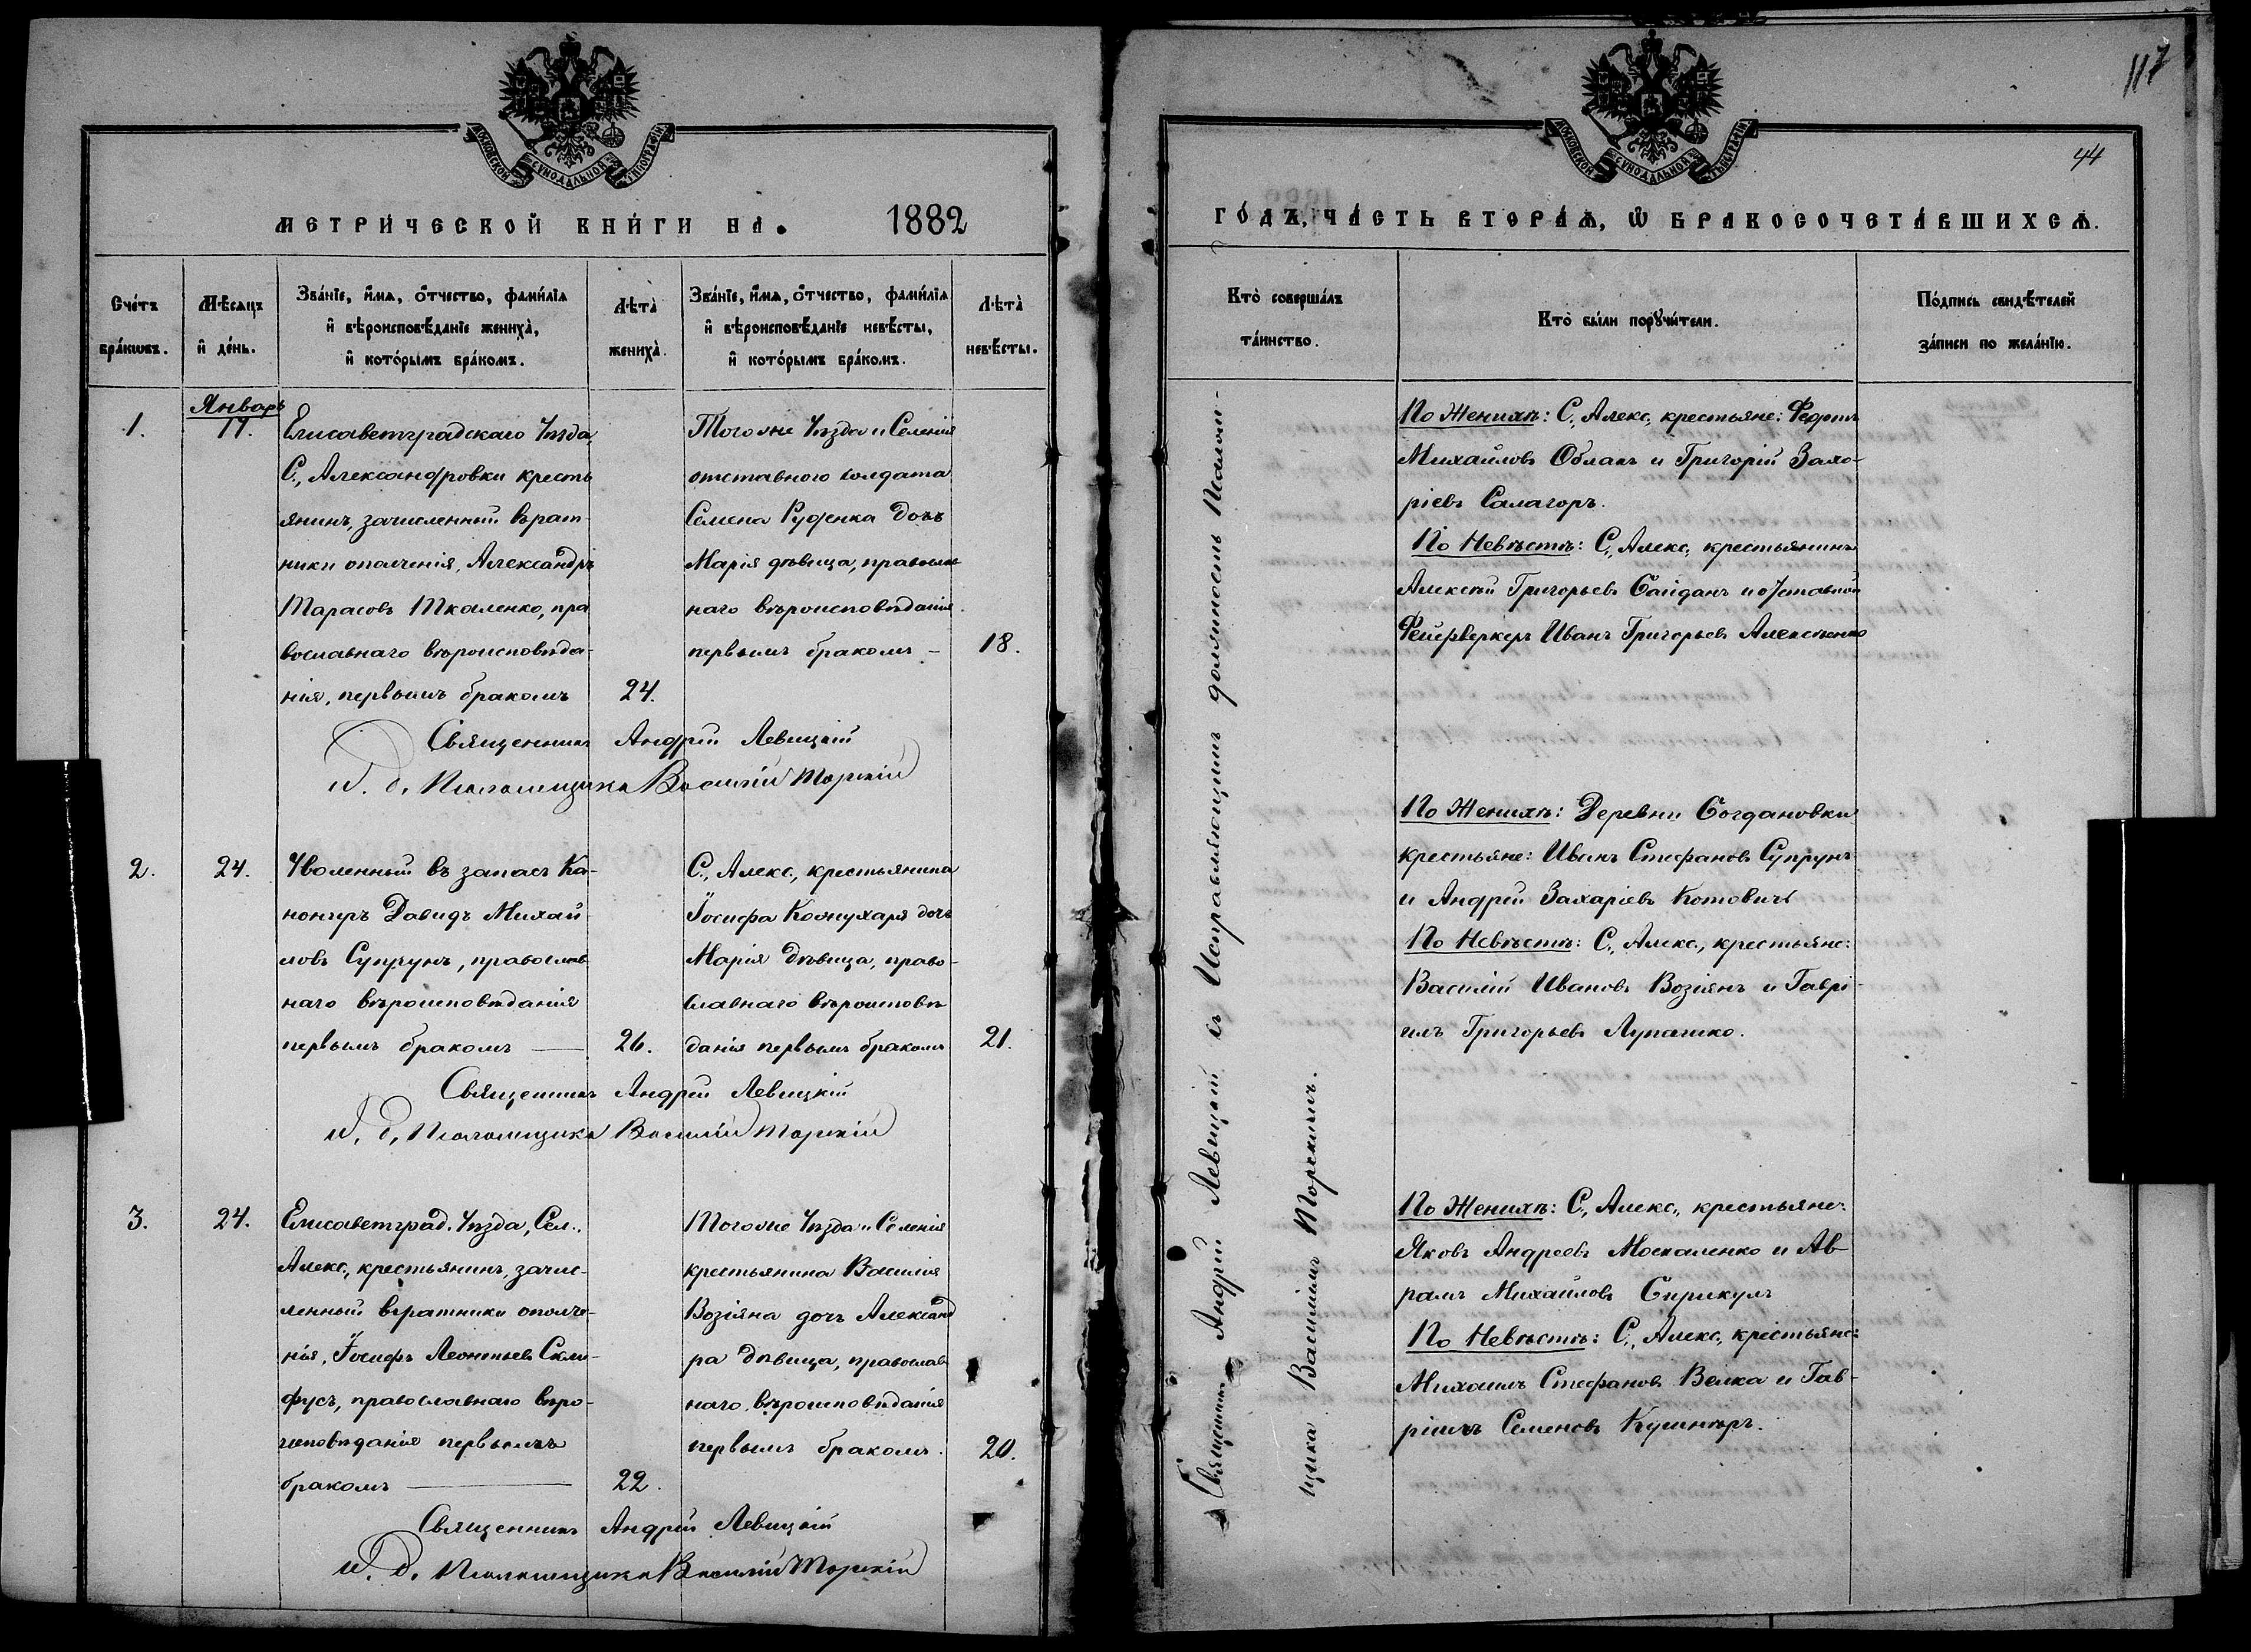 МОСКОВСКОЙ СУНОДАЛЬНОЙ ТИПОГРАФІИ
МЕТРИ́ЧЕСКОЙ КНИ́ГИ НА 1882
Сче́тъ бра́ковъ.
Мѣ́сяцъ и де́нь.
Зва́нїе, и́мѧ, о́тчество, фами́лїѧ
и вѣроисповѣ́данїе жениха̀,
и кото́рымъ бра́комъ.
Лѣта̀ жениха̀.
Зва́нїе, и́мѧ, о́тчество, фами́лїѧ
и вѣроисповѣ́данїе невѣ́сты,
и кото́рымъ бра́комъ.
Лѣта̀ невѣ́сты.
Январь
1.
17.
Елисаветградскаго Уѣзда,
С., Александровки кресть
янинъ, зачисленный в рат-
ники ополченія, Александръ
Тарасовъ Ткаленко, пра
вославнаго вѣроисповѣда-
нія, первымъ бракомъ
24.
Того же Уѣзда и Селенія
отставного солдата
Семена Руденка дочь
Марія дѣвица, православ
наго вѣроисповѣданія
первымъ бракомъ –
18.
Священникъ Андрей Левицкій
И. д. Псаломщика Василій Торскій
2.
24.
Уволенный въ запасъ Ка-
нониръ Давидъ Михай-
ловъ Супрунъ, православ
наго вѣроисповѣданія
первымъ бракомъ —
26.
С., Алекс., крестьянина
Іосифа дочь
Марія дѣвица, право-
славнаго вѣроисповѣ
данія первымъ бракомъ
21.
Священникъ Андрей Левицкій
И. д. Псаломщика Василій Торскій
3.
24.
Елисаветград. Уѣзда, Сел.,
Алекс., крестьянинъ, зачис-
ленный в ратники ополче-
нія, Іосифъ Леонтьевъ Скли-
фусъ, православнаго вѣро-
исповѣданія первымъ
бракомъ —
22.
Того же Уѣзда и Селенія
крестьянина Василія
Возіяна дочь Александ
ра дѣвица, православ
наго вѣроисповѣданія
первымъ бракомъ.
20.
Священникъ Андрей Левицкій
И. д. Псаломщика Василій Торскій
117
44
МОСКОВСКОЙ СУНОДАЛЬНОЙ ТИПОГРАФІИ
ГО́ДЪ, ЧА́СТЬ ВТОРА́Ѧ, Ѡ БРАКОСОЧЕТА́ВШИХСѦ.
Кто̀ соверша́лъ
та́инство.
Кто̀ бы́ли порꙋчи́тели.
По́дпись свидѣ́телей
за́писи по жела́нїю.
Священникъ Андрей Левицкій съ Исправляющимъ должность Псалом-
щика Василіемъ Торскимъ.
По Женихѣ: С., Алекс., крестьяне:
Михайловъ Облакъ и Григорій Заха-
ріевъ Салагоръ.
По Невѣстѣ: С., Алекс., крестьянинъ
Алексѣй Григорьевъ Сайданъ и отставной
Фейерверкеръ Иванъ Григорьевъ Алексѣенко
По Женихѣ: Деревни Богдановки
крестьяне: Иванъ Стефановъ Супрунъ
и Андрей Захаріевъ Котовичъ
По Невѣстѣ: С., Алекс., крестьяне:
Василій Ивановъ Возіянъ и Гаврі-
илъ Григорьевъ Лупашко.
По Женихѣ: С., Алекс., крестьяне:
Яковъ Андреевъ Москаленко и Ав-
рамъ Михайловъ
По Невѣстѣ: С., Алекс., крестьяне:
Михаилъ Стефановъ Велка и Гав-
ріилъ Семеновъ Кушниръ.